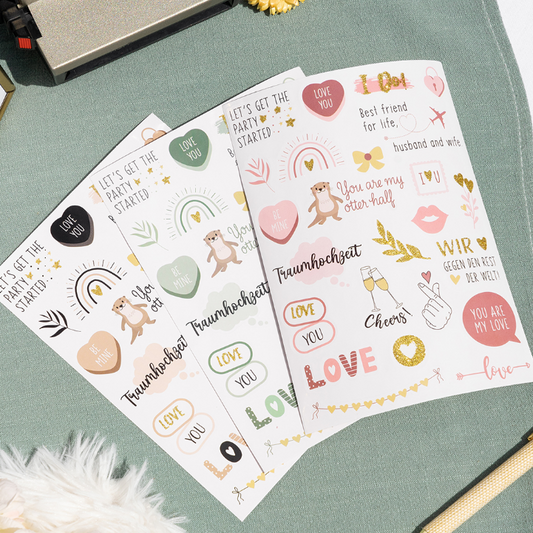 LET'S GET THE
PARTY
STARTED
LOVE
YOU
I do!
Best friend
for life,
husband and wife
BE
MINE
You are my
otter half
I
YOU
Traumhochzeit
WIR
GEGEN DEN REST
DER WELT!
LOVE
YOU
Cheers
YOU ARE
MY LOVE
LOVE
love
LET'S GET THE
PARTY
STARTED
LOVE
YOU
BE
MINE
You
otter
Traumhochzeit
LOVE
YOU
LO
LET'S GET THE
PARTY
STARTED
LOVE
YOU
BE
MINE
You
Traumhochzeit
LOVE
YOU
LO